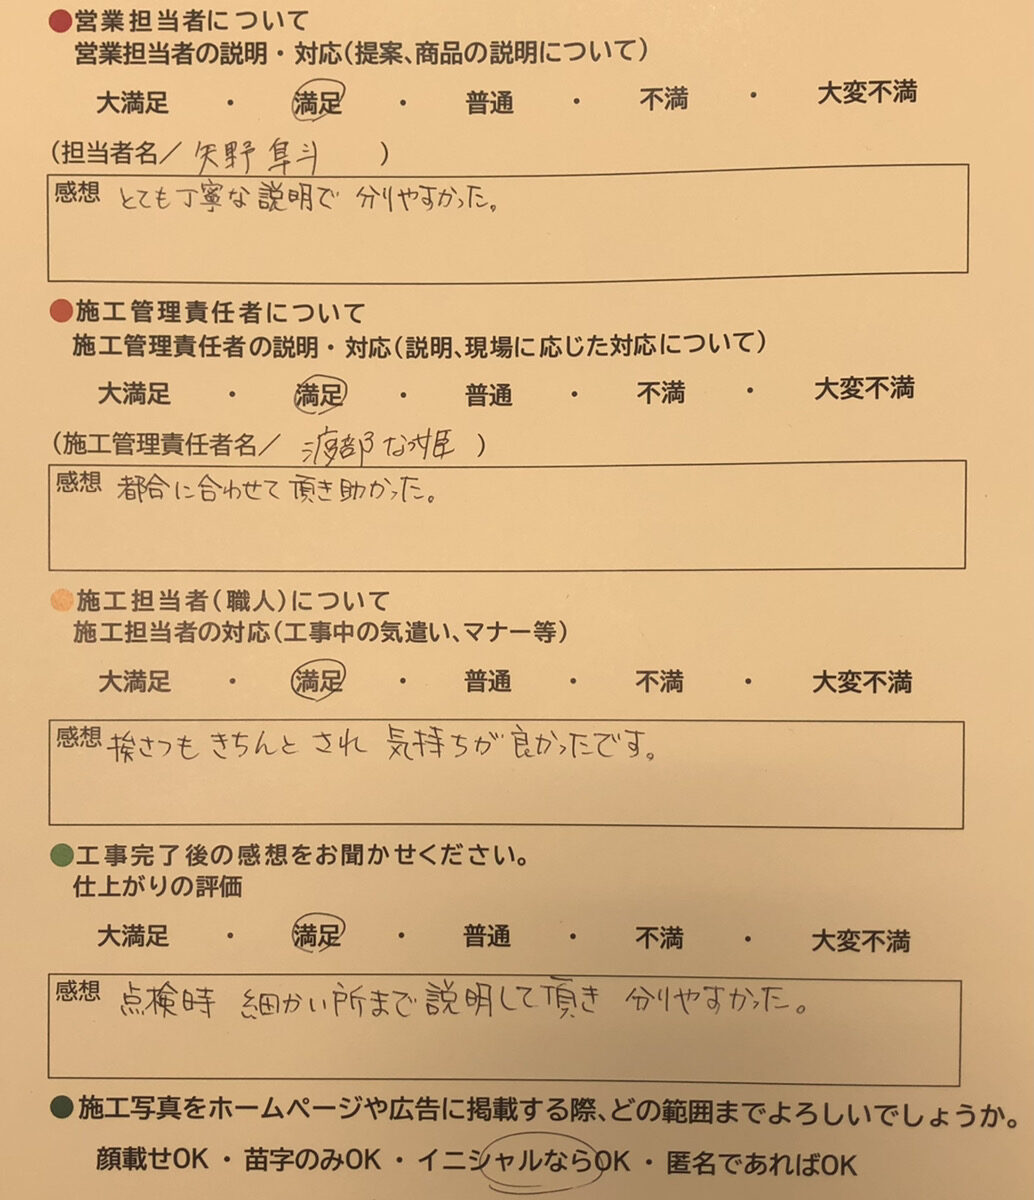 ●営業担当者について
営業担当者の説明・対応(提案、商品の説明について)
大満足 ・ 満足 ・ 普通 ・ 不満 ・ 大変不満
(担当者名/ 矢野 隼斗 )
感想 とても丁寧な説明で 分りやすかった。
●施工管理責任者について
施工管理責任者の説明・対応(説明、現場に応じた対応について)
大満足 ・ 満足 ・ 普通 ・ 不満 ・ 大変不満
(施工管理責任者名/ 渡部 な姫 )
感想 都合に合わせて頂き助かった。
●施工担当者(職人)について
施工担当者の対応(工事中の気遣い、マナー等)
大満足 ・ 満足 ・ 普通 ・ 不満 ・ 大変不満
感想 挨さつも きちんと され 気持ちが良かったです。
●工事完了後の感想をお聞かせください。
仕上がりの評価
大満足 ・ 満足 ・ 普通 ・ 不満 ・ 大変不満
感想 点検時 細かい所まで説明して頂き 分りやすかった。
●施工写真をホームページや広告に掲載する際、どの範囲までよろしいでしょうか。
顔載せOK・苗字のみOK・イニシャルならOK・匿名であればOK